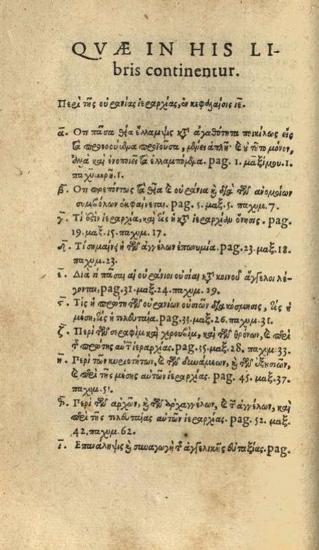 QVÆ IN HIS LI-
bris continentur.
Περὶ τῆς οὐρανίας ἱεραρχίας, ἐν κεφαλαίοις ιε.
α. Ὅτι πᾶσα θεία ἔλλαμψις κατ᾽ ἀγαθότητα ποικίλως εἰς
τὰ προνοούμενα προϊοῦσα, μένει ἁπλῆ· καὶ οὐ τοῦτο μόνον,
ἀλλὰ καὶ ἑνοποιεῖ τὰ ἐλλαμπόμενα. pag. 1. μαξίμου. 1.
παχυμερῆ. 1.
β. Ὅτι πρεπόντως τὰ θεῖα καὶ οὐράνια καὶ διὰ τῶν ἀνομοίων
συμβόλων ἐκφαίνεται. pag. 5. μαξ. 5. παχυμ. 7.
γ. Τί ἐστὶν ἱεραρχία, καὶ τίς ἡ κατ᾽ ἱεραρχίαν ὄνησις. pag.
19. μαξ. 15. παχυμ. 17.
δ. Τί σημαίνει ἡ τῶν ἀγγέλων ἐπωνυμία. pag. 23. μαξ. 18.
παχυμ. 23.
ε. Διὰ τί πᾶσαι αἱ οὐράνιοι οὐσίαι κατὰ κοινοῦ ἄγγελοι λέ-
γονται, pag. 31. μαξ. 24. παχυμ. 29.
ϛ. Τίς ἡ πρώτη τῶν οὐρανίων οὐσιῶν διακόσμησις, τίς ἡ
μέση, τίς ἡ τελευταία. pag. 35. μαξ. 26. παχυμ. 31.
ζ. Περὶ τῶν σεραφὶμ καὶ χερουβὶμ, καὶ τῶν θρόνων, καὶ περὶ
τῆς πρώτης αὐτῶν ἱεραρχίας. pag. 35. μαξ. 28. παχυμ. 33.
η. Περὶ τῶν κυριοτήτων, καὶ τῶν δυνάμεων, καὶ τῶν ἐξουσιῶν,
καὶ περὶ τῆς μέσης αὐτῶν ἱεραρχίας. pag. 45. μαξ. 37.
παχυμ. 51.
θ. Περὶ τῶν ἀρχῶν, καὶ τῶν ἀρχαγγέλων, καὶ τῶν ἀγγέλων, καὶ
περὶ τῆς τελευταίας αὐτῶν ἱεραρχίας. pag. 52. μαξ.
42. παχυμ. 62.
ι. Ἐπανάληψις καὶ συναγωγὴ τῆς ἀγγελικῆς εὐταξίας. pag.